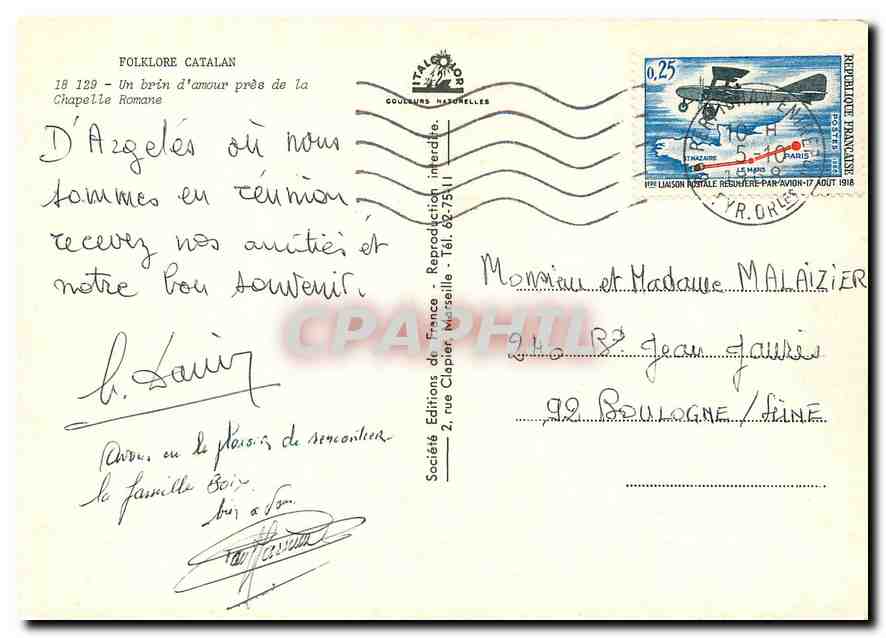 FOLKLORE CATALAN
18 129 - Un brin d'amour près de la
Chapelle Romane
ITALCOLOR
COULEURS NATURELLES
D'Argelés où nous
sommes en réunion
recevez nos amitiés et
notre bon souvenir.
Avons eu le plaisir de rencontrer
la famille Boix.
bien à vous
Société Editions de France - Reproduction interdire.
2, rue Clapier, Marseille - Tél. 62-75-11
0,25
REPUBLIQUE FRANÇAISE
POSTES
ST NAZAIRE
LE MANS
PARIS
1ERE LIAISON POSTALE REGULIERE PAR AVION-17 AOUT 1918
10 H
5-10
PYR. ORLES
Monsieur et Madame MALAIZIER
240 Bd Jean Jaurès
92 BOULOGNE/SEINE
CPAPHIL